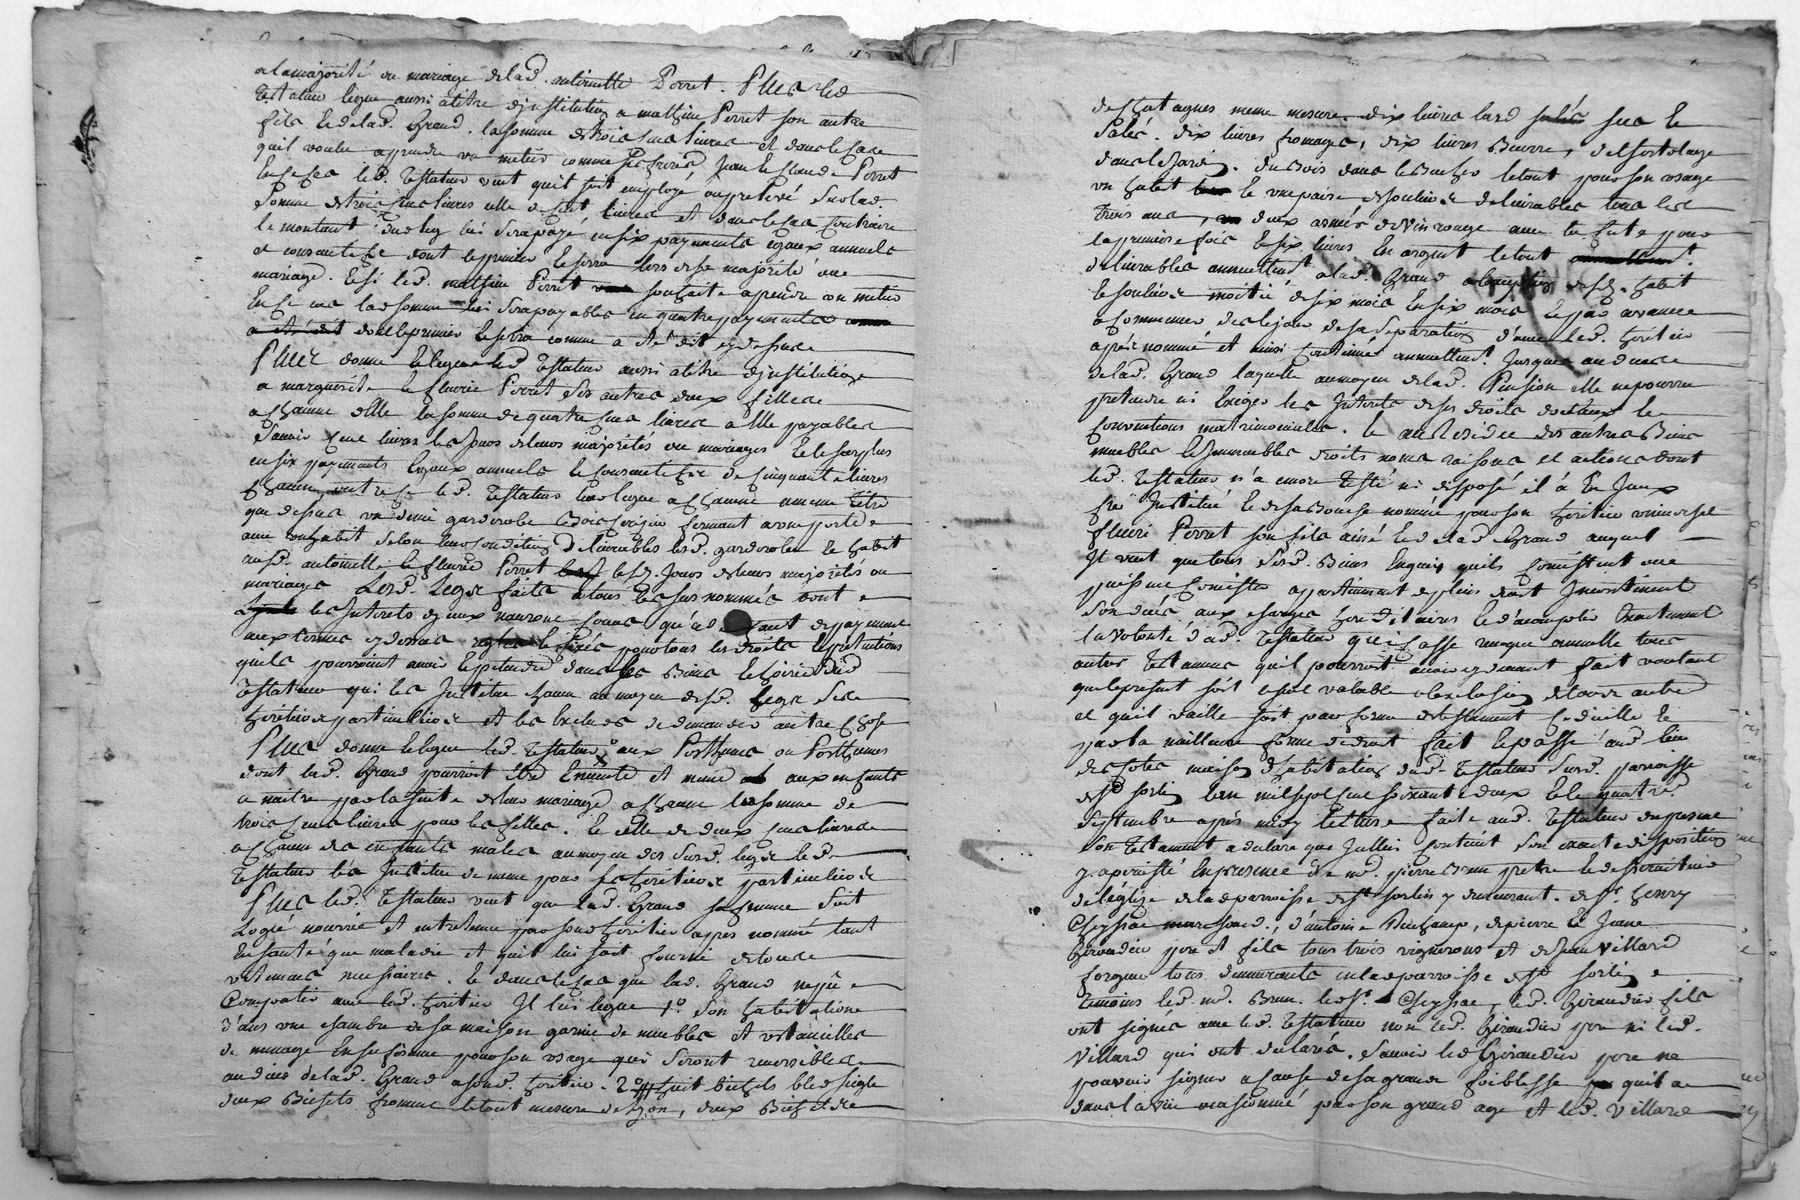 a la majorité ou mariage de lad. antoinette Perret. Plus led
testateur legue aussi a titre d'institution a mathieu Perret son autre
fils et de lad. Grand. la somme de trois cens livres et dans le cas
quil voulu aprendre un metier comme ses freres Jean et Claude Perret
en ce cas led. testateur veut quil soit employé ou prelevé sur lad.
somme de trois cens livres celle de cent livres et dans le cas contraire
le montant dud leg lui sera payé en six payements egaux annuels
et consecutifs dont le premier se fera lors de sa majorité ou
mariage. Et si led. mathieu Perret souhaite aprendre un metier
en ce cas lad somme lui sera payable en quatre payements
dont le premier se fera comme a été dit cy dessus
Plus donne et legue led testateur aussi a titre d'institution
a marguerite et fleurie Perret ses autres deux filles
a chacune d'elle la somme de quatre cens livres a elle payables
savoir cent livres les jours de leurs majorités ou mariages et le surplus
en six payements egaux annuels et consecutifs de cinquante livres
chacun, outre ce led. testateur leur legue a chacune au meme titre
que dessus un demi garderobe bois cerisier fermant a une porte
avec un habit selon leur condition délivrables lesd. garderobes et habit
ausd. antoinette et fleurie Perret lesd. jours de leurs majorités ou
mariages Lesd. legs faits a tous les sus nommés dont
les interets d'yceux nauront cours qu'a de payement
aux termes cy dessus pour tous les droits et pretentions
quils pourroient avoir et pretendre dans les biens et hoirie dud
testateur qui les institue chacun au moyen desd. legs ses
heritiers particuliers et les exclud de demander autre chose
Plus donne et legue led. testateur aux Posthume ou Posthumes
dont lad. Grand pourroit etre enceinte et meme aux enfants
a naitre par la suite de leur mariage a chacun la somme de
trois cens livres pour les filles. et celle de deux cens livres
a chacun des enfants males au moyen des susd. legs led.
testateur les institue de meme pour ses heritiers particuliers
Plus led. testateur veut que lad. Grand sa femme soit
logée nourrie et entretenue par son heritier apres nommé tant
en santé que maladie et quil lui soit fourni de tous
vetemens necessaires. et dans le cas que lad. Grand ne pu
compatir avec led. heritier il lui legue 1° son habitation
dans une chambre de sa maison garnie de meubles et ustancilles
de menage en sufisance pour son usage qui seront reversibles
au deces de lad. Grand a sond. heritier. 2° huit bichets bled seigle
deux bichets froment le tout mesure de Lyon, deux bichets de
de chatagnes meme mesure. dix livres lard sec et
salés. dix livres fromages, dix livres beurre, de l'hortolage
dans le jardin. du bois dans le bucher le tout pour son usage
un habit et une paire de souliers délivrables tous les
trois ans, deux asnées de vin rouge avec la futte pour
la premiere fois et six livres en argent le tout
délivrables annuellement a lad. Grand a l'exception desd. habit
et souliers moitié de six mois en six mois et par avance
a commencer dés le jour de sa separation d'avec led. heritier
apres nommé et ainsi continuer annuellement jusques au deces
de lad. Grand laquelle au moyen de lad. Pension elle ne pourra
pretendre ni exiger les interets de ses droits dotaux et
conventions matrimoniales. et au residu de ses autres biens
meubles et immeubles droits noms raisons et actions dont
led. testateur n'a encore testé ni disposé il a en iceux
fait institué et de sa bouche nommé pour son heritier universel
fleuri Perret son fils ainé et de lad Grand auquel
Il veut que tous sesd. biens en quoy quils consistent ou
puissent consister appartiennent de plein droit incontinent
son deces aux charges hereditaires et d'acomplir exactement
la volonté dud. testateur qui casse revoque annulle tous
autres testaments quil pourroit avoir cy devant fait voulant
que le present soit seul valable a l'exclusion de tous autre
et quil vaille soit par forme de testament codicille et
par la meilleure forme de droit fait et passé aud. lieu
des cotes maison d'habitation dud. testateur susd. paroisse
de st sorlin l'an mil sept cent soixante deux et le quatre
septembre apres midy lecture faite aud. testateur du present
son testament a declaré que Jcelluy contient son exacte disposition
y a persisté en presence de me. pierre Brun pretre et desservant
de l'eglise de lad paroisse de st sorlin y demeurant. de sr henry
Cheyssac marchand, d'antoine Duchamp, de pierre et Jean
Giraudier pere et fils tous trois vignerons et de Jean Villard
forgeur tous demeurants en lad paroisse de st sorlin
temoins led. me. Brun. led sr. Cheyssac, led. Giraudier fils
ont signés avec led. testateur non led. Giraudier pere ni led.
Villard qui ont declarés. savoir led Giraudier pere ne
pouvoir signer a cause de sa grande foiblesse quil a
dans la vue ocasionné par son grand age et led. Villard